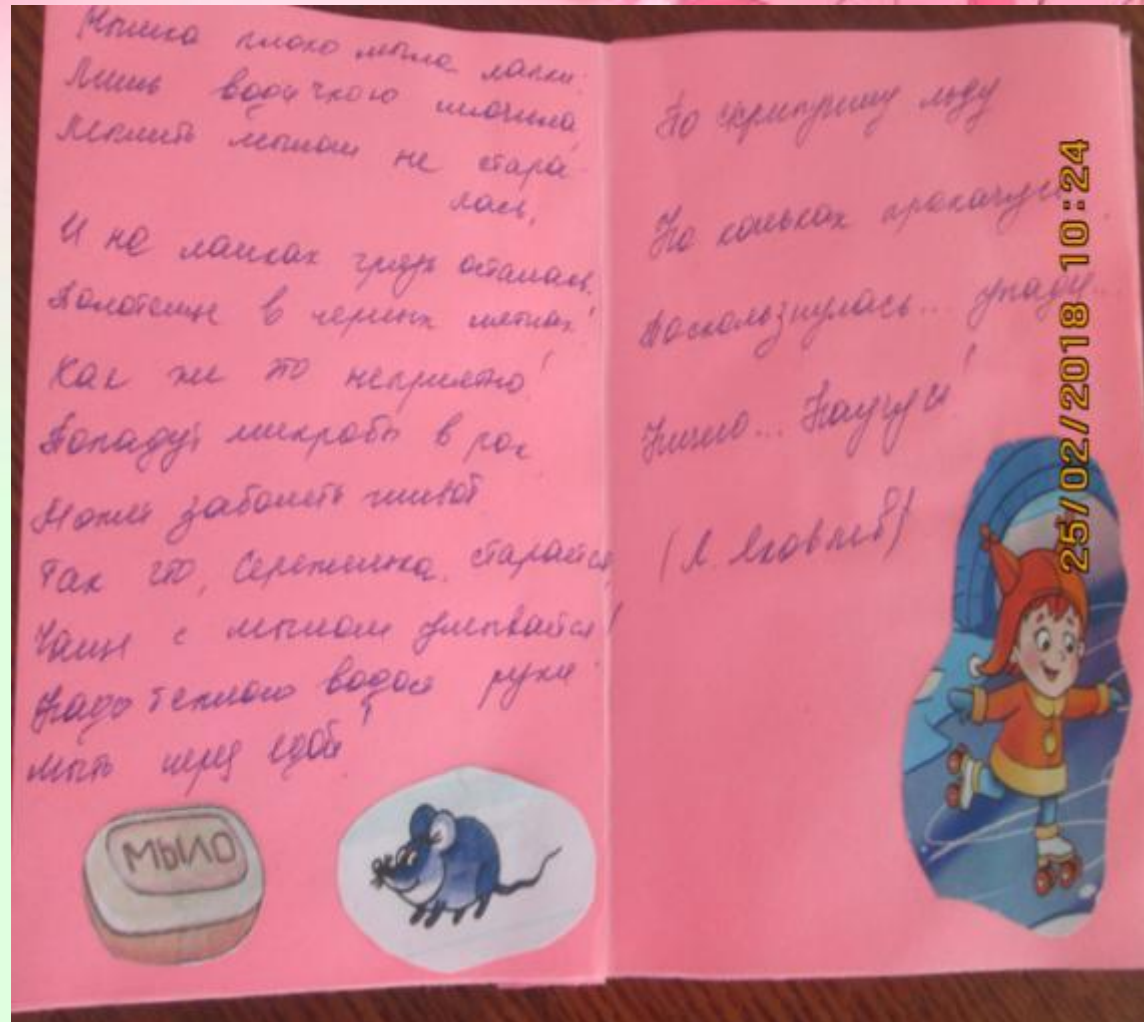 Мышка плохо мыла лапки:
Лишь водичкою мочила,
Мылить мылом не стара-
лась,
И на лапках грязь осталась.
Полотенце в черных пятнах!
Как же это неприятно!
Попадут микробы в рот
Может заболеть живот.
Так что, Сереженька, старайся,
Чаще с мылом умывайся!
Надо теплою водой руки
мыть перед едой!
МЫЛО
По скрипучему льду
На коньках прокачусь
Поскользнулась... упаду...
Ничего... Научусь!
(Л. Яковлев)
25/02/2018 10:24